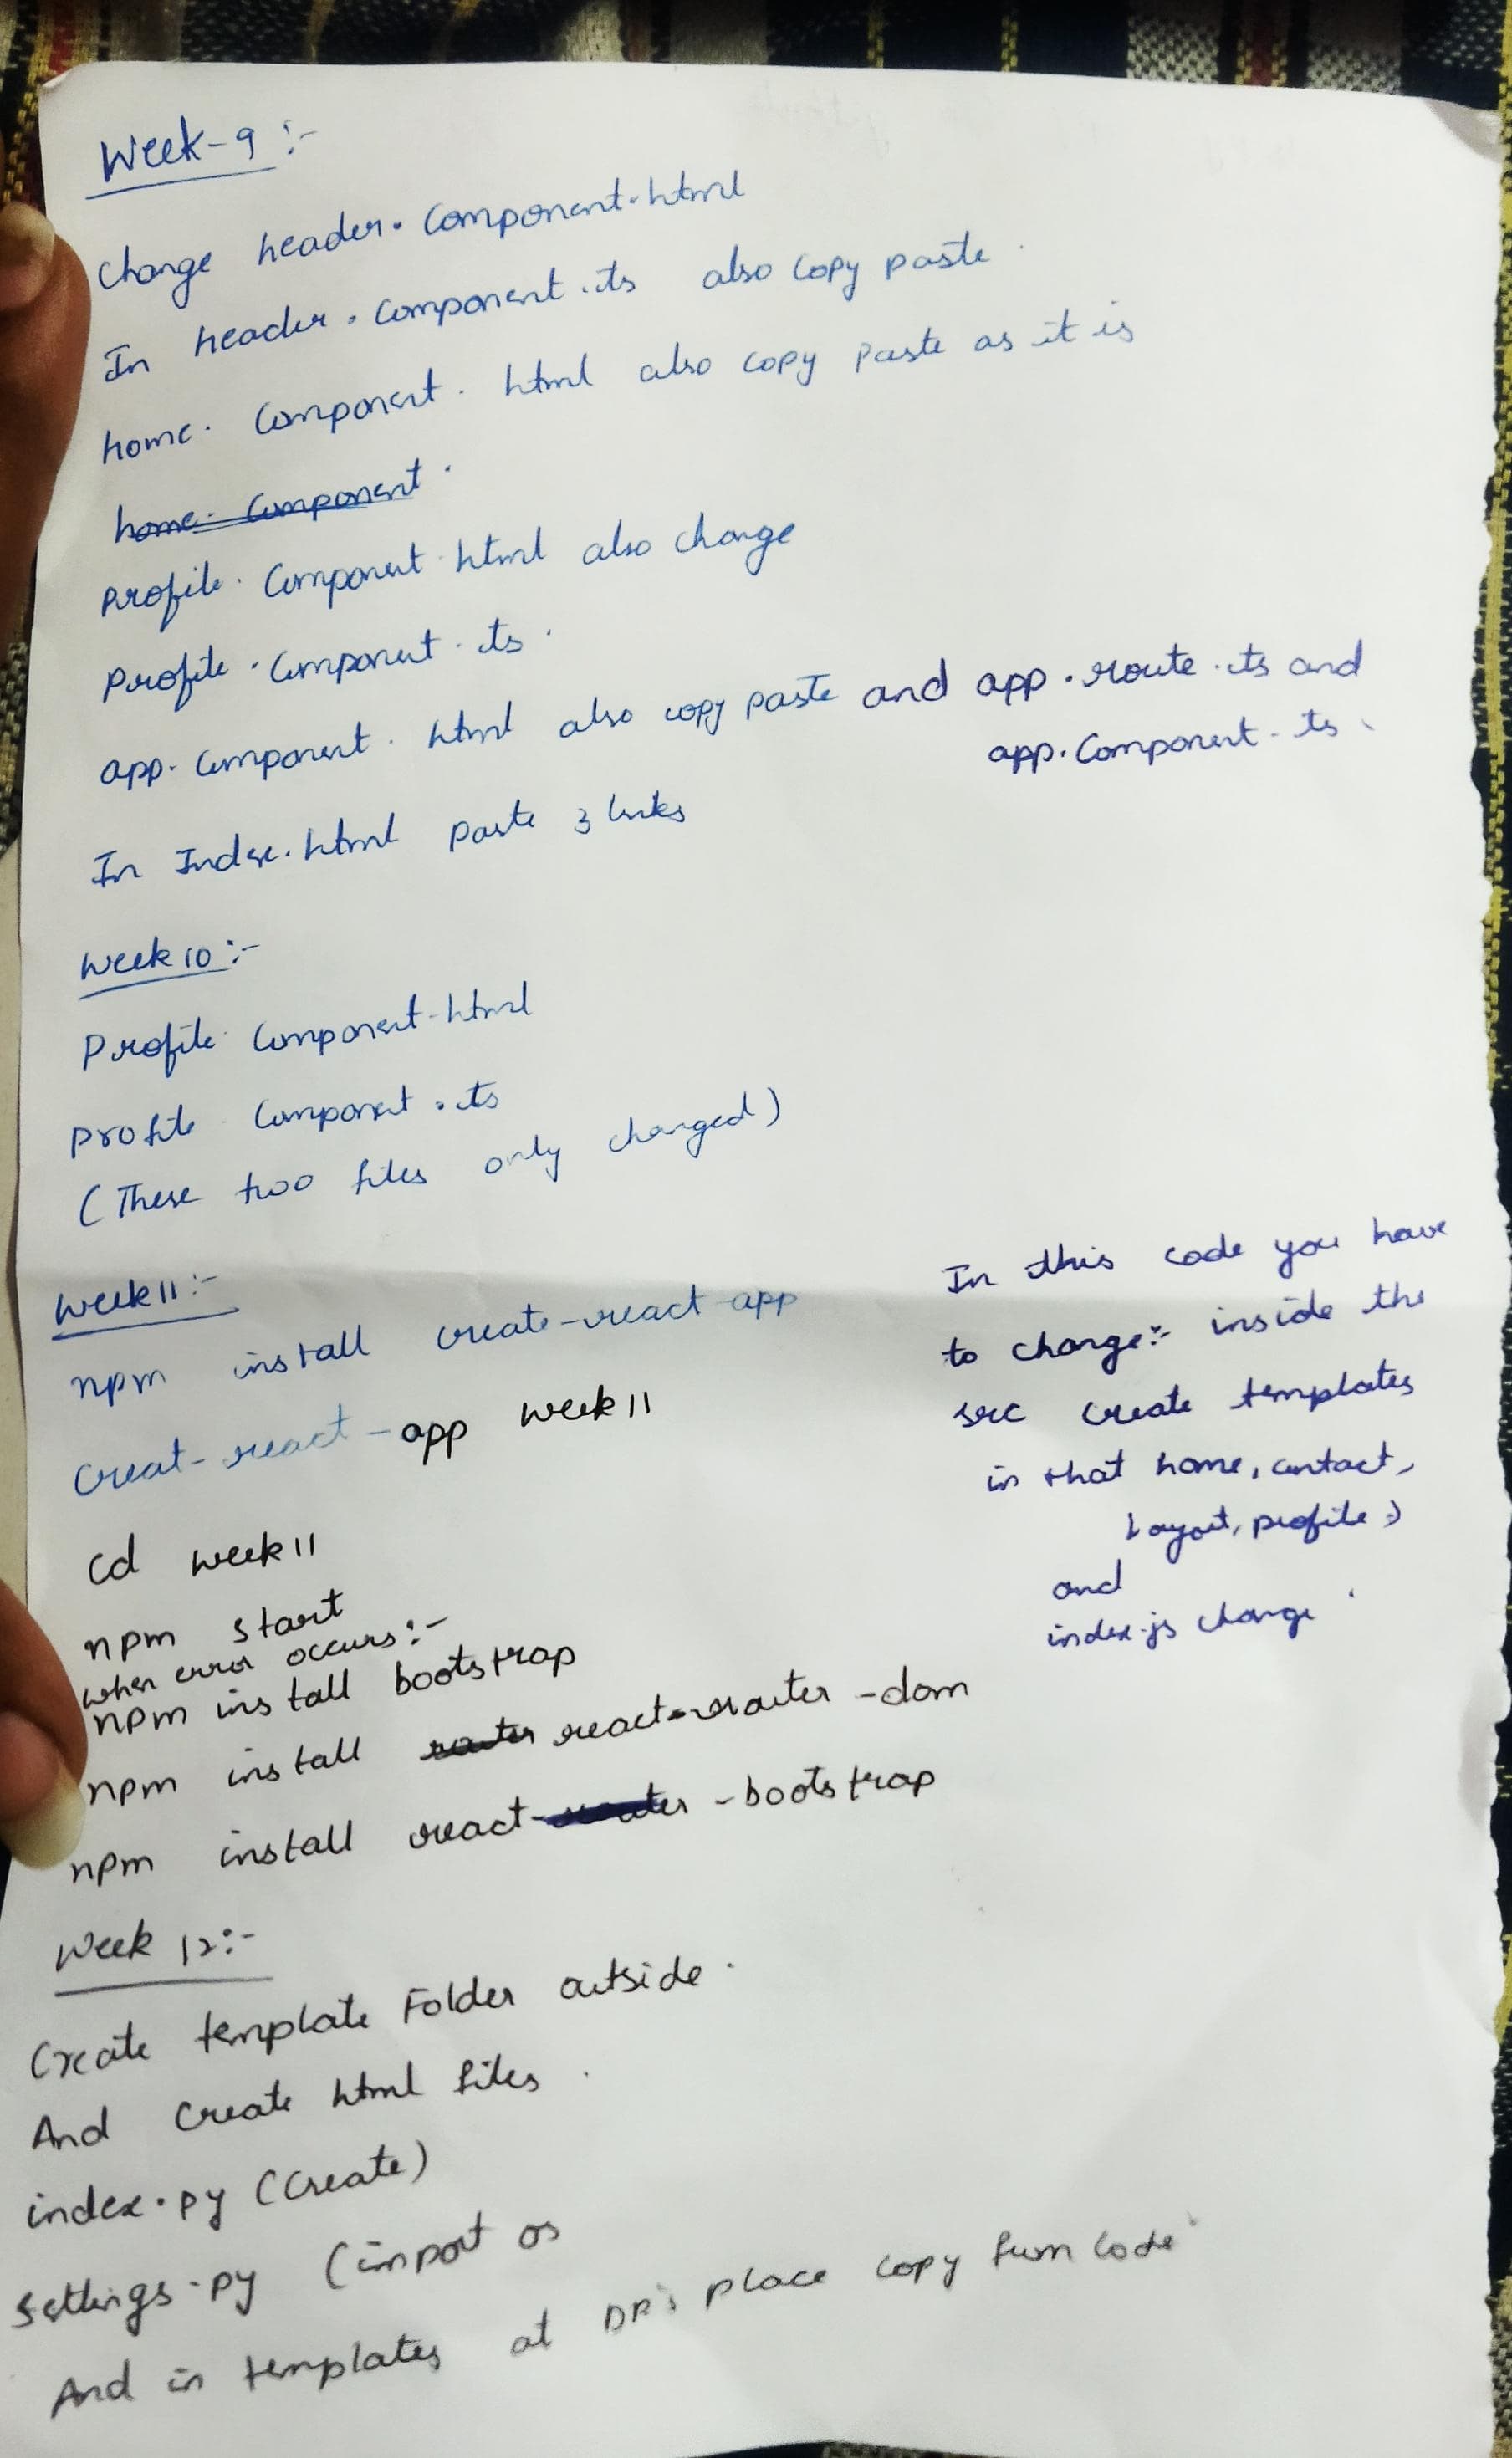 Week-9 :-
Change header.component.html
In header.component.ts also copy paste.
home.component.html also copy paste as it is
home. component.
profile.component.html also change
profile.component.ts.
app.component.html also copy paste and app.route.ts and
app.component.ts.
In Index.html paste 3 links
Week 10 :-
Profile component-html
profile component.ts
(These two files only changed)
Week 11 :-
npm install create-react-app
Creat-react-app week 11
cd week 11
npm start
when error occurs :-
npm install bootstrap
npm install router react-router-dom
npm install react-router-bootstrap
In this code you have
to change:- inside the
src create templates
in that home, contact,
layout, profile)
and
index.js change.
Week 12:-
Create template Folder outside.
And Create html files.
index.py (Create)
settings.py (import os
And in templates at DR's place copy from code